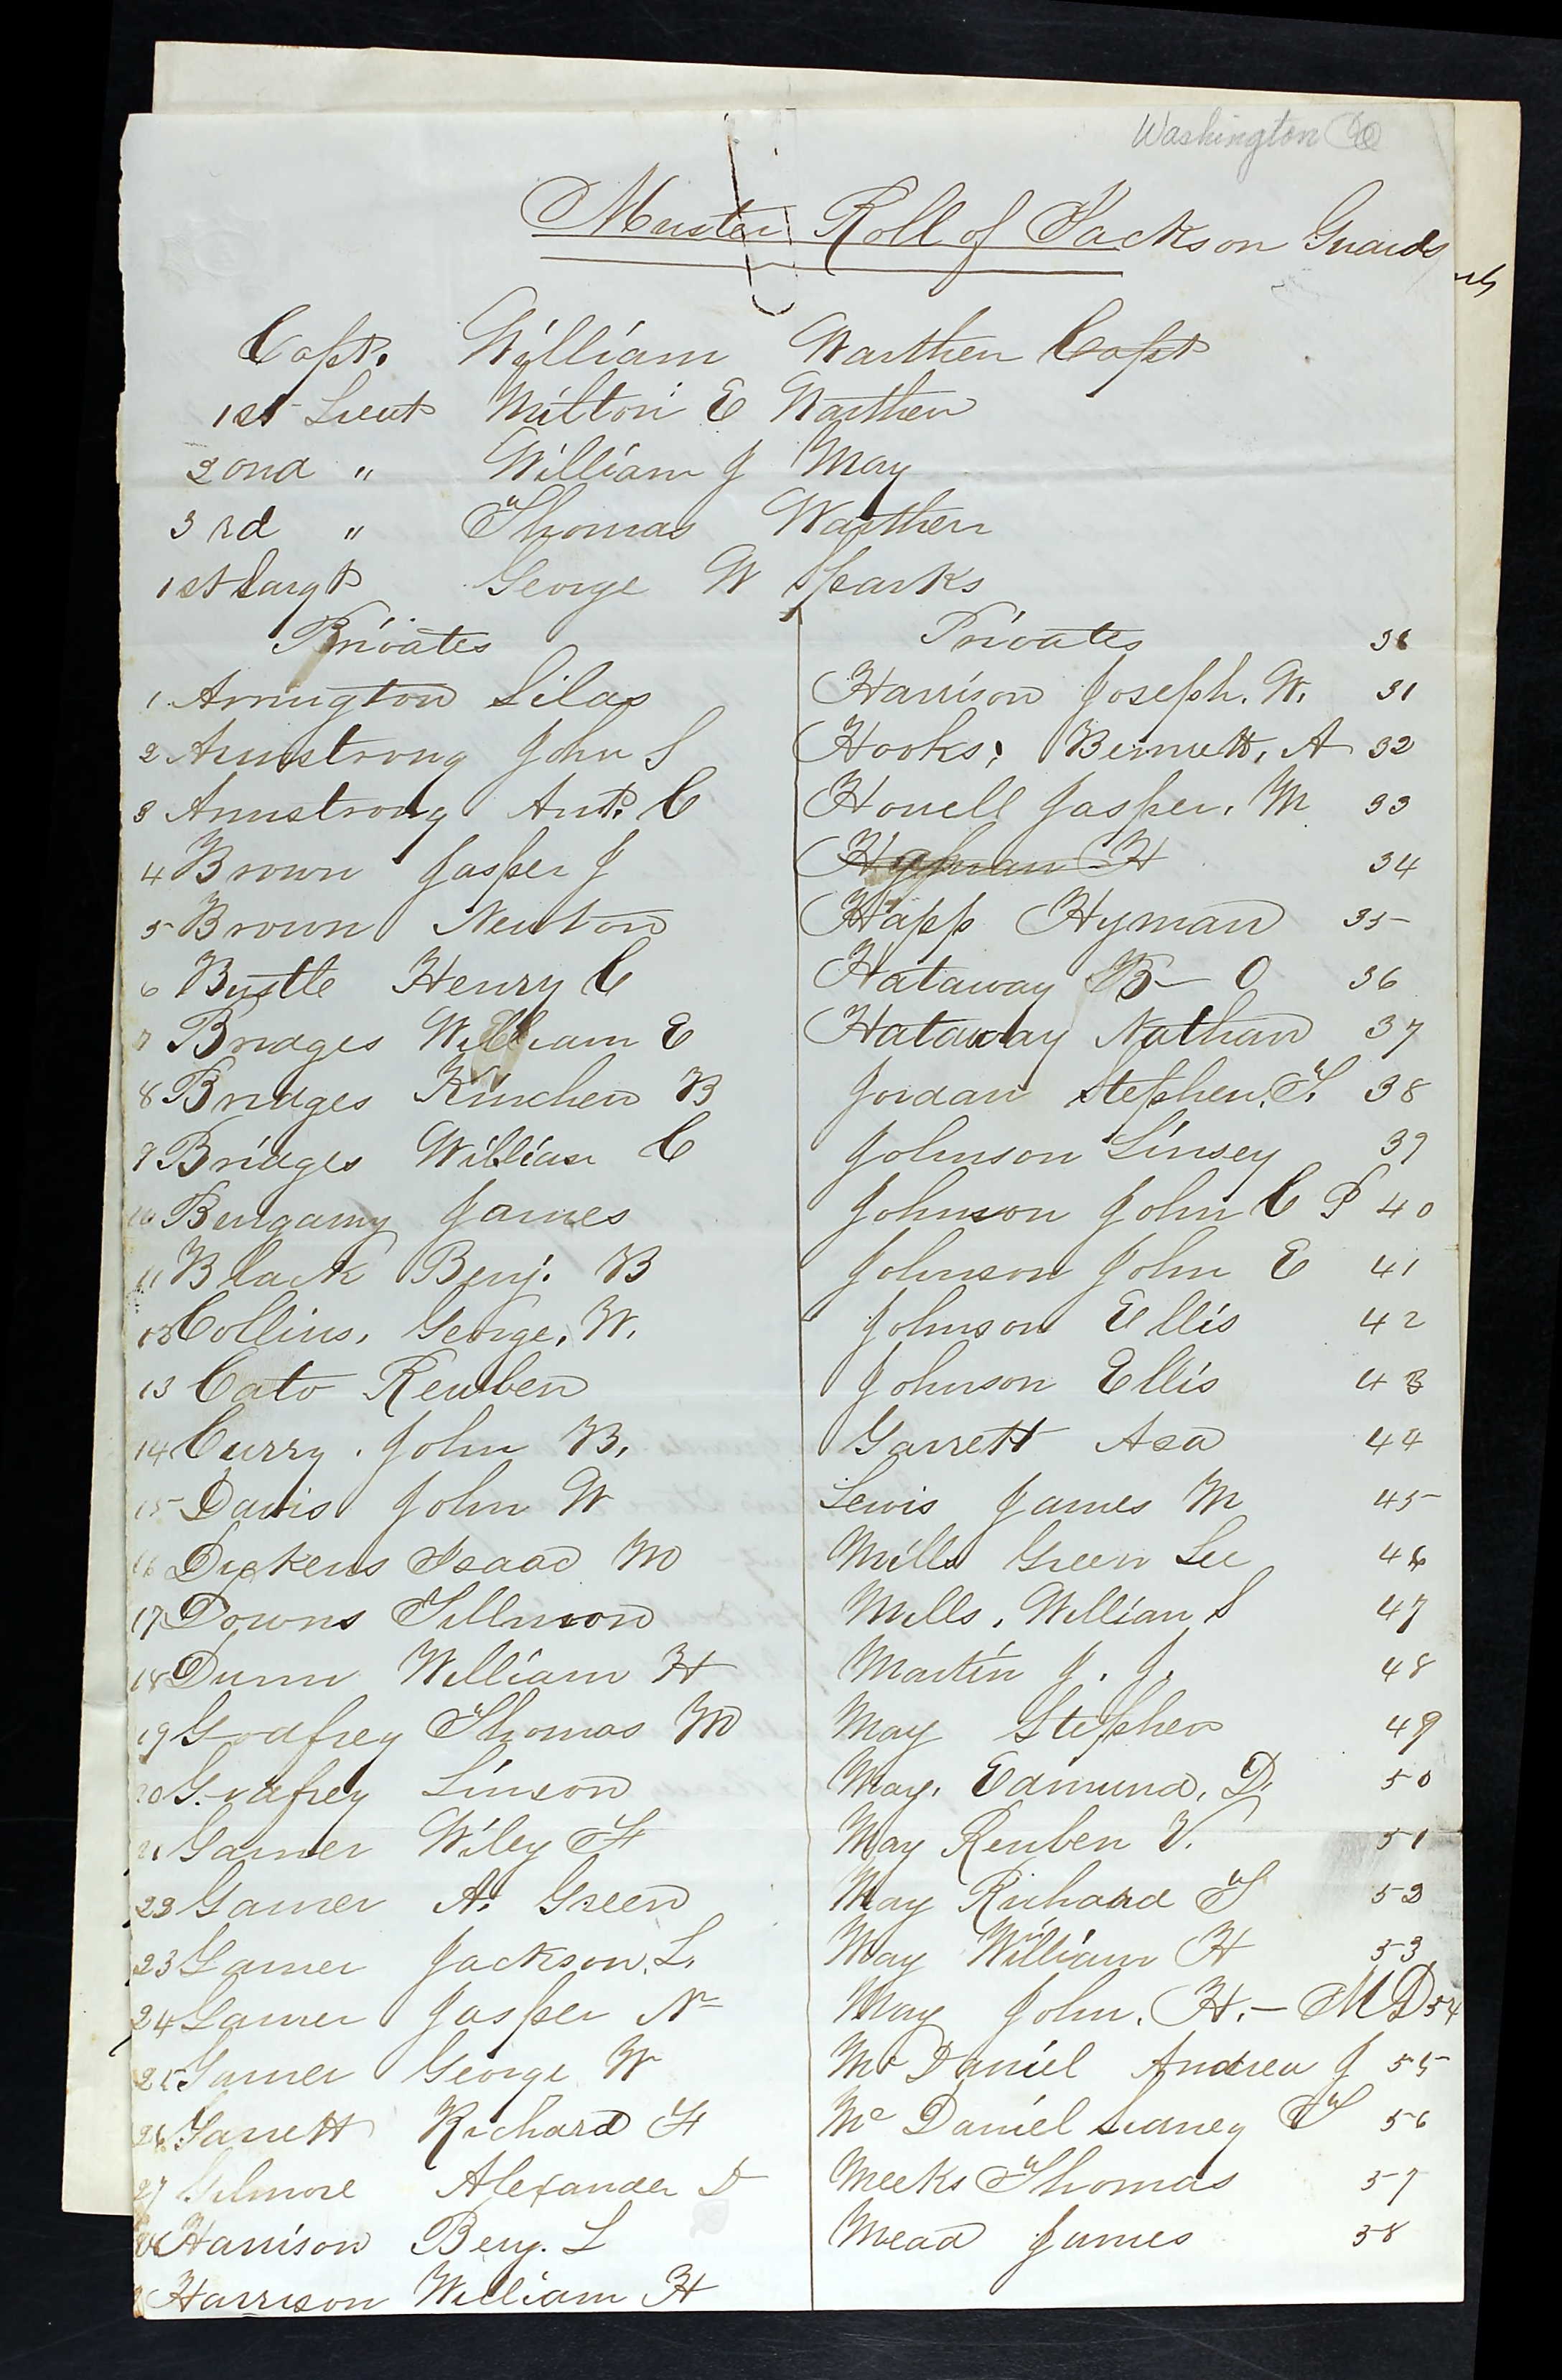 Washington Co
Muster Roll of Jackson Guards
Capt. William Warthen Capt
1st Lieut Milton E Warthen
2ond " William J May
3rd " Thomas Warthen
1st Sargt George W Sparks
Privates
1 Arrington Silas
2 Armstrong John S
3 Armstrong Ant. C
4 Brown Jasper J
5 Brown Newton
6 Bustle Henry C
7 Bridges William E
8 Bridges Kinchen B
9 Bridges William C
10 Bengamy James
11 Black Benj. B
12 Collins, George, W.
13 Cato Reuben
14 Curry. John B.
15 Davis John W
16 Dickens Isaac M
17 Downs Tillmon
18 Dunn William H
19 Godfrey Thomas M
20 Godfrey Linson
21 Garner Wiley F
22 Garner A. Green
23 Garner Jackson. L.
24 Garner Jasper N
25 Garner George W
26 Garrett Richard F
27 Gilmore Alexander D
28 Harrison Benj. L
Harrison William H
Privates 36
Harrison Joseph. W. 31
Hooks; Bennett, A 32
Howell Jasper. M 33
Hyman H 34
Happ Hyman 35
Hataway B - O 36
Hataway Nathan 37
Jordan Stephen. T. 38
Johnson Linsey 39
Johnson John C P 40
Johnson John E 41
Johnson Ellis 42
Johnson Ellis 43
Garrett Asa 44
Lewis James M 45
Mills Green Lee 46
Mills, William S 47
Martin J. J. 48
May Stephen 49
May. Edmund, D. 50
May Reuben V. 51
May Richard T 52
May William H 53
May John. H. - MD 54
Mc Daniel Andrew J 55
Mc Daniel Sidney T 56
Meeks Thomas 57
Mead James 58